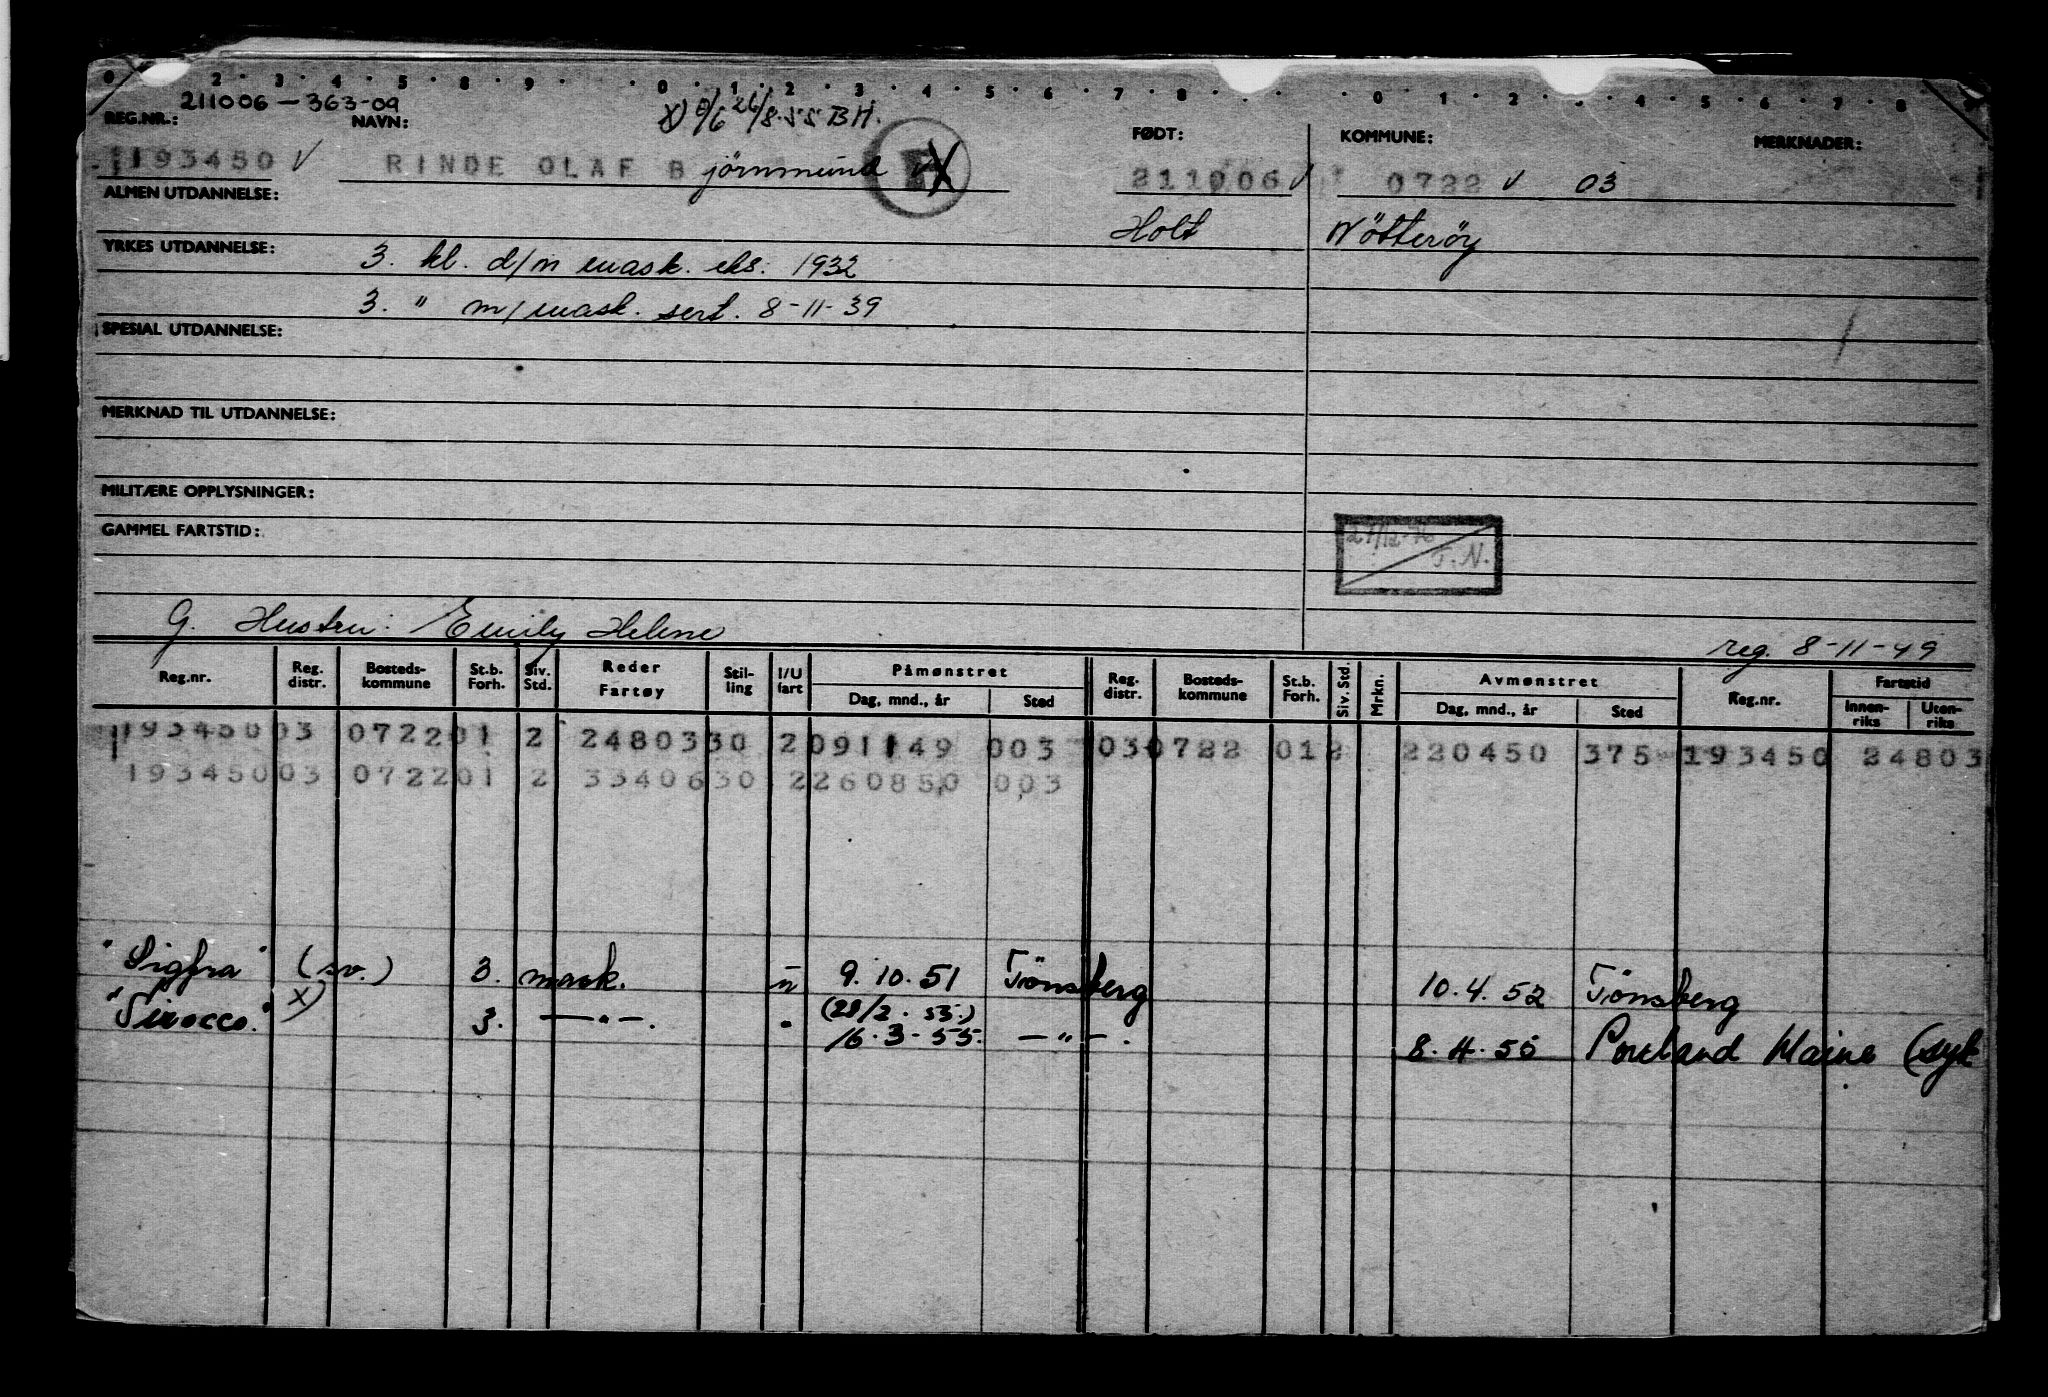 0 2 · 3 · 4 · 5 · 8 · 9 · 0 · 1 · 2 · 3 · 4 · 5 · 6 · 7 · 8 · 0 · 1 · 2 · 3 · 4 · 5 · 6 · 7 · 8 · 9
211006-363-09
X) 26/8-55 BH.
REG.NR.: NAVN: FØDT: KOMMUNE: MERKNADER:
193450 V RINDE OLAF B jörnmund V X 211006 V 0722 V 03
ALMEN UTDANNELSE:
Holt Nötteröy
YRKES UTDANNELSE: 3. kl. d/m mask. eks. 1932
3. " m/mask. sert. 8-11-39
SPESIAL UTDANNELSE:
MERKNAD TIL UTDANNELSE:
MILITÆRE OPPLYSNINGER:
GAMMEL FARTSTID:
T. N.
G. Hustru: Emily Helene
reg. 8-11-49
Reg.nr. Reg. distr. Bosteds-kommune St.b. Forh. Siv. Std. Reder Fartøy Stil-ling I/U fart Påmønstret Dag, mnd., år Sted Reg. distr. Bosteds-kommune St.b. Forh. Siv. Std. Mrkn. Avmønstret Dag, mnd., år Sted Reg.nr. Fartstid Innen-riks Uten-riks
193450 03 0722 01 2 24803 30 2 091149 003 03 0722 01 2 220450 375 193450 24803
193450 03 0722 01 2 33406 30 2 260850 003
"Sigfra" (sv.) 3. mask. u 9.10.51 Tönsberg 10.4.52 Tönsberg
"Sirocco." X) 3. —"—. " (28/2.55.)
16.3-55. —"—. 8.4.55 Portland Maine (syk